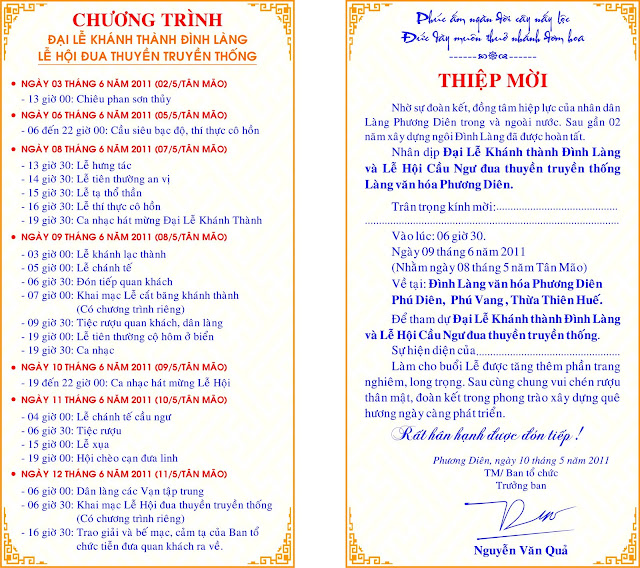 CHƯƠNG TRÌNH
ĐẠI LỄ KHÁNH THÀNH ĐÌNH LÀNG
LỄ HỘI ĐUA THUYỀN TRUYỀN THỐNG
• NGÀY 03 THÁNG 6 NĂM 2011 (02/5/TÂN MÃO)
- 13 giờ 00: Chiêu phan sơn thủy
• NGÀY 06 THÁNG 6 NĂM 2011 (05/5/TÂN MÃO)
- 06 đến 22 giờ 00: Cầu siêu bạc độ, thí thực cô hồn
• NGÀY 08 THÁNG 6 NĂM 2011 (07/5/TÂN MÃO)
- 13 giờ 30: Lễ hưng tác
- 14 giờ 30: Lễ tiên thường an vị
- 15 giờ 30: Lễ tạ thổ thần
- 16 giờ 30: Lễ thí thực cô hồn
- 19 giờ 30: Ca nhạc hát mừng Đại Lễ Khánh Thành
• NGÀY 09 THÁNG 6 NĂM 2011 (08/5/TÂN MÃO)
- 03 giờ 00: Lễ khánh lạc thành
- 05 giờ 00: Lễ chánh tế
- 06 giờ 30: Đón tiếp quan khách
- 07 giờ 00: Khai mạc Lễ cắt băng khánh thành
(Có chương trình riêng)
- 09 giờ 30: Tiệc rượu quan khách, dân làng
- 19 giờ 00: Lễ tiên thường cô hôm ở biển
- 19 giờ 30: Ca nhạc
• NGÀY 10 THÁNG 6 NĂM 2011 (09/5/TÂN MÃO)
- 19 đến 22 giờ 00: Ca nhạc hát mừng Lễ Hội
• NGÀY 11 THÁNG 6 NĂM 2011 (10/5/TÂN MÃO)
- 04 giờ 00: Lễ chánh tế cầu ngư
- 06 giờ 30: Tiệc rượu
- 15 giờ 00: Lễ xụa
- 19 giờ 00: Hội chèo cạn đưa linh
• NGÀY 12 THÁNG 6 NĂM 2011 (11/5/TÂN MÃO)
- 06 giờ 00: Dân làng các Vạn tập trung
- 06 giờ 30: Khai mạc Lễ Hội đua thuyền truyền thống
(Có chương trình riêng)
- 16 giờ 30: Trao giải và bế mạc, cảm tạ của Ban tổ
chức tiễn đưa quan khách ra về.
Phúc ấm ngàn đời cây nẩy lộc
Đức dày muôn thuở nhánh đơm hoa
THIỆP MỜI
Nhờ sự đoàn kết, đồng tâm hiệp lực của nhân dân
Làng Phương Diên trong và ngoài nước. Sau gần 02
năm xây dựng ngôi Đình Làng đã được hoàn tất.
Nhân dịp Đại Lễ Khánh thành Đình Làng
và Lễ Hội Cầu Ngư đua thuyền truyền thống
Làng văn hóa Phương Diên.
Trân trọng kính mời:..........................................
Vào lúc: 06 giờ 30.
Ngày 09 tháng 6 năm 2011
(Nhằm ngày 08 tháng 5 năm Tân Mão)
Về tại: Đình Làng văn hóa Phương Diên
Phú Diên, Phú Vang , Thừa Thiên Huế.
Để tham dự Đại Lễ Khánh thành Đình Làng
và Lễ Hội Cầu Ngư đua thuyền truyền thống.
Sự hiện diện của..................................................
Làm cho buổi Lễ được tăng thêm phần trang
nghiêm, long trọng. Sau cùng chung vui chén rượu
thân mật, đoàn kết trong phong trào xây dựng quê
hương ngày càng phát triển.
Rất hân hạnh được đón tiếp !
Phương Diên, ngày 10 tháng 5 năm 2011
TM/ Ban tổ chức
Trưởng ban
Nguyễn Văn Quả